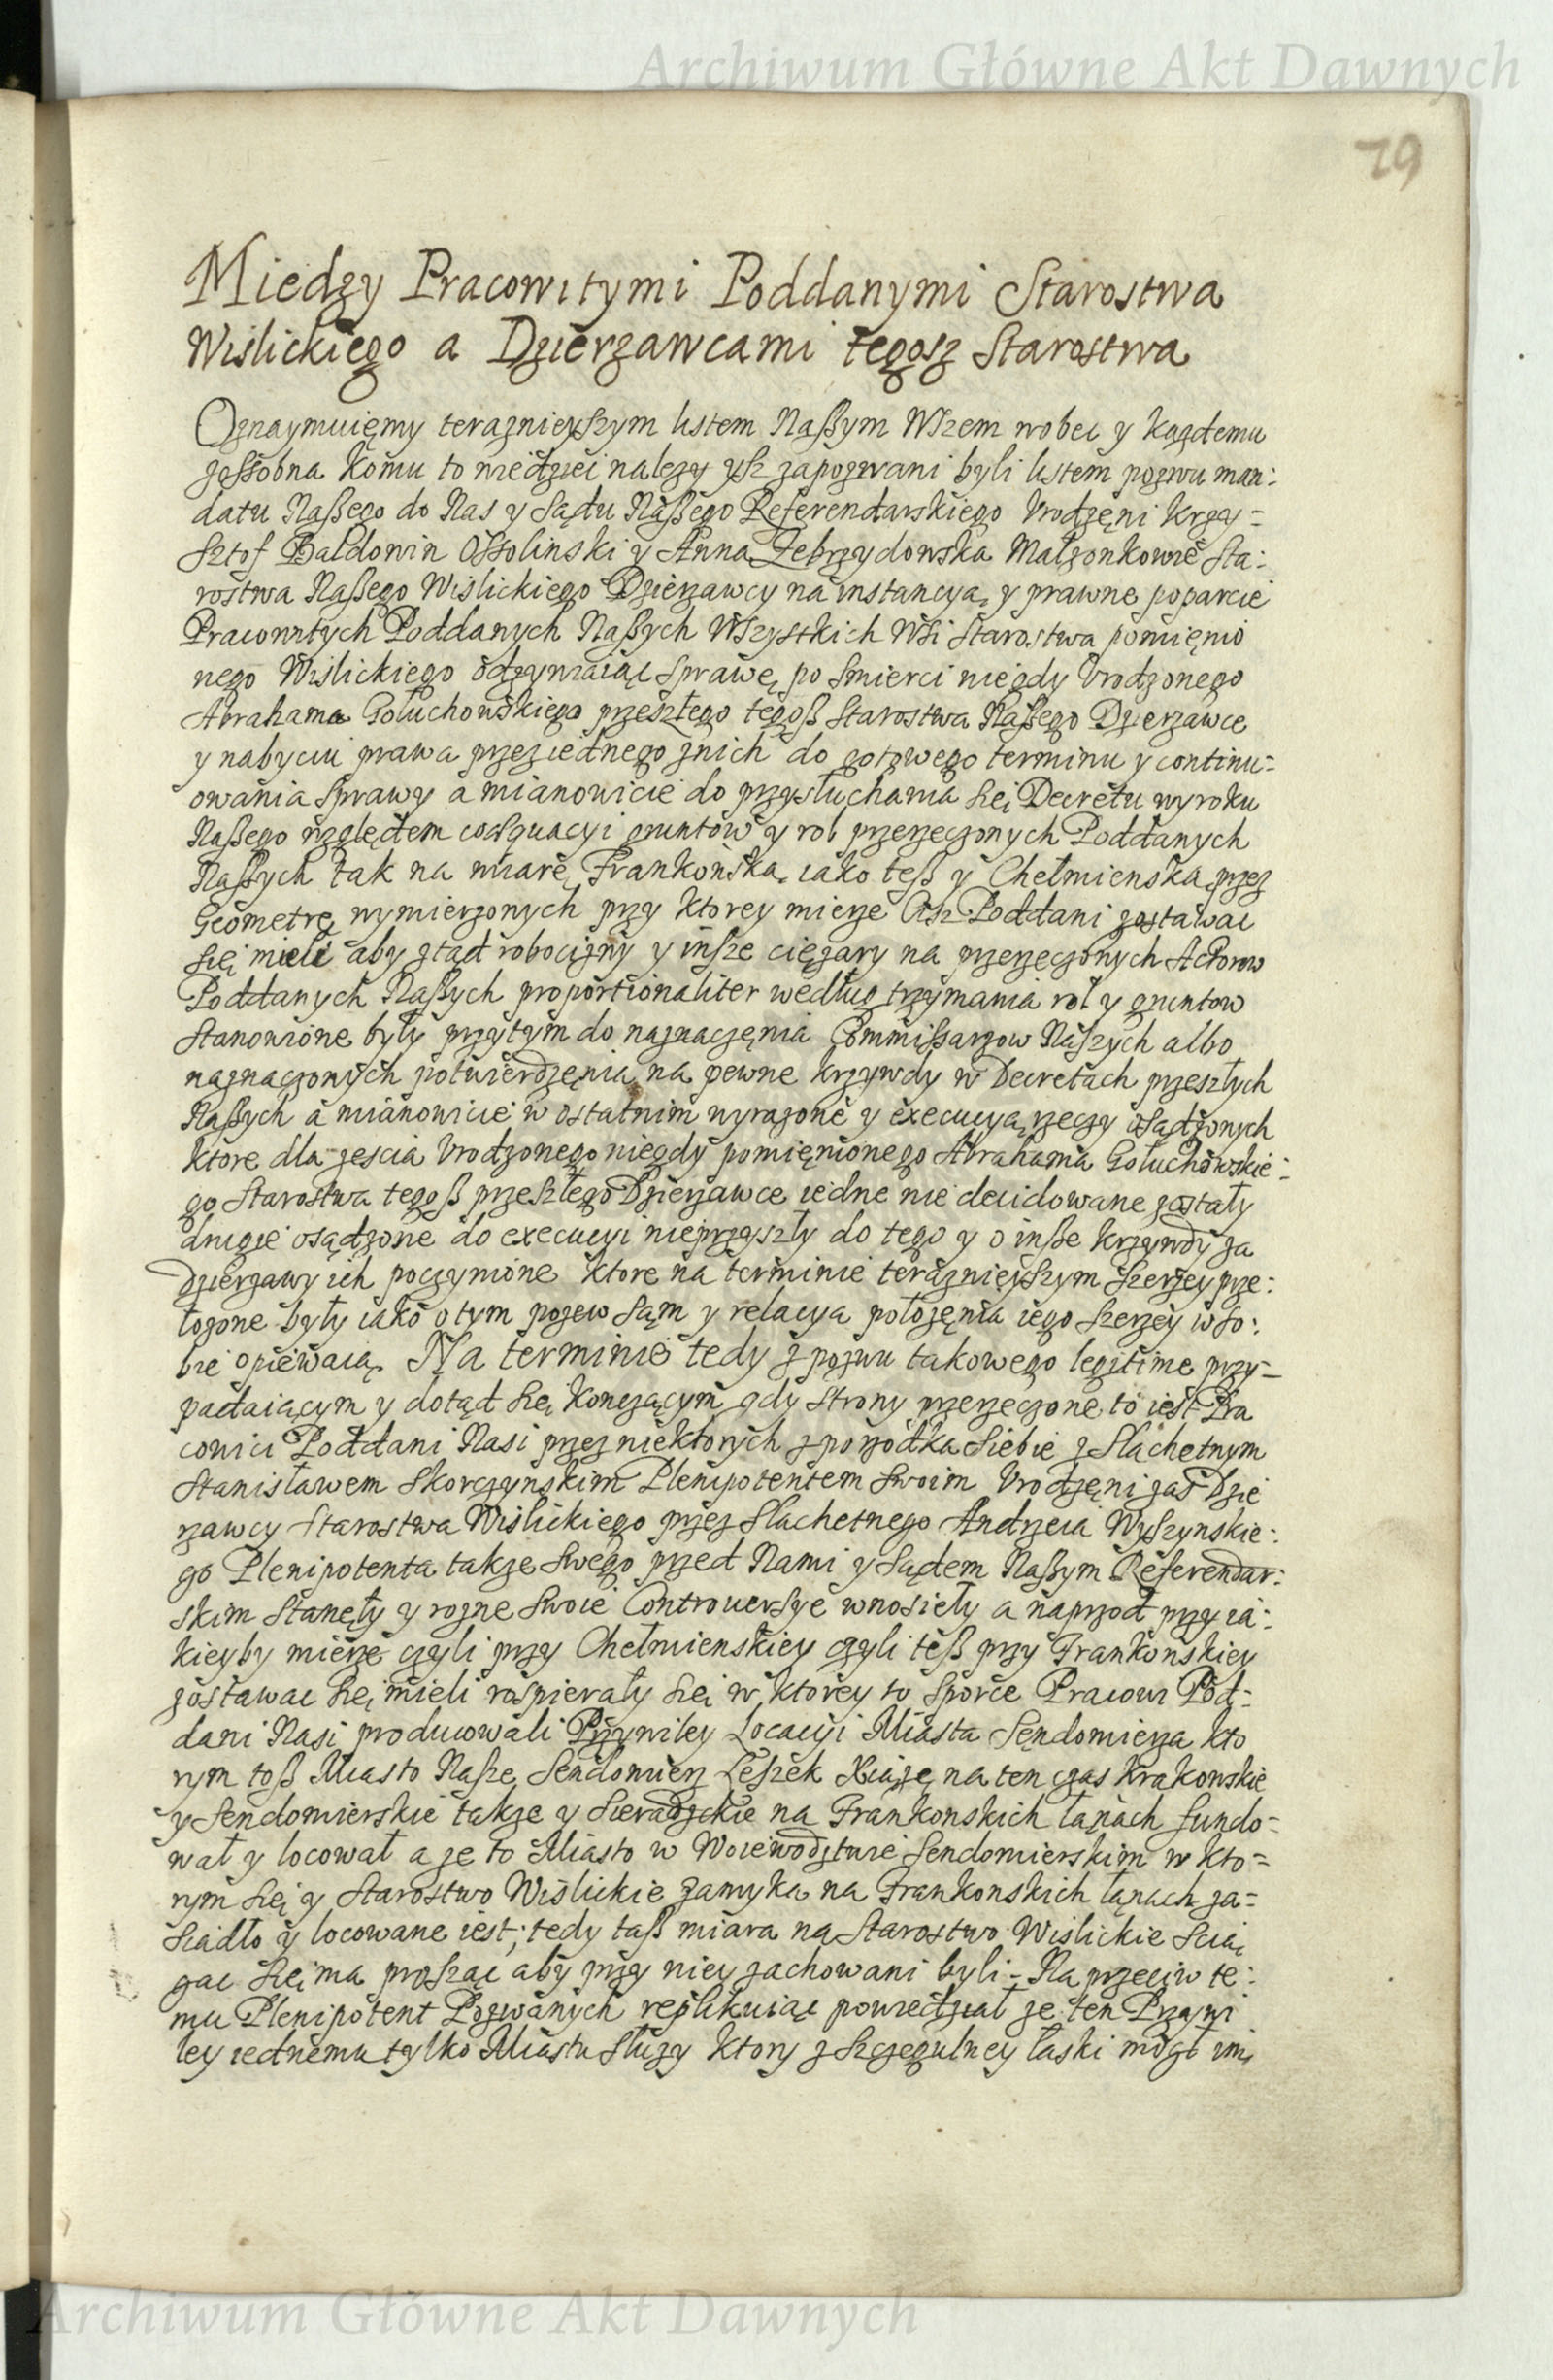 Archiwum Główne Akt Dawnych
79
Miedzy Pracowitymi Poddanymi Starostwa
Wislickiego a Dzierzawcami tegosz Starostwa
Oznaymuięmy teraznieyszym listem Naßym Wszem wobec y kazdemu
zossobna komu to wiedziec nalezy ysz zapozwani byli listem pozwu man:
datu Naßego do Nas y Sądu Naßego Referendarskiego Vrodzęni Krzy=
sztof Baldowin Ossolinski y Anna Zebrzydowska Małzonkowie Sta:
rostwa Naßego Wislickiego Dzierzawcy na instancyą y prawne poparcie
Pracowitych Poddanych Naßych Wszystkich Wsi Starostwa pomięnio
nego Wislickiego odzywaiąc sprawę po smierci niegdy Vrodzonego
Abrahama Gołuchowskiego przeszłego tegoß Starostwa Naßego Dzierzawce
y nabyciu prawa przeziednego znich do gotowego terminu y continu=
owania sprawy a mianowicie do przysłuchania się Decretu wyroku
Naßego względem coæquacyi gruntow y rol przerzeczonych Poddanych
Naßych tak na miarę Frankonską iako teß y Chełmienską przez
Geometrę wymierzonych przy ktorey mierze Cisz Poddani zostawac
się mieli aby ztąd robocizny y insze cięzary na przerzeczonych Actorow
Poddanych Naßych proportionaliter według trzymania rol y gruntow
stanowione były przytym do naznaczęnia Commissarzow Naszych albo
naznaczonych potwierdzęnia na pewne krzywdy w Decretach przeszłych
Naßych a mianowicie w ostatnim wyrazone y execucyą rzeczy osądzonych
ktore dla zescia Vrodzonego niegdy pomięnionego Abrahama Gołuchowskie:
go Starostwa tegoß przeszłego Dzierzawce iedne nie decidowane zostały
drugie osądzone do execucyi nieprzyszły do tego y o inße krzywdy za
Dzierzawy ich poczynione ktore na terminie teraznieyszym szerzey prze:
łozone były iako o tym pozew sąm y relacya połozęnia iego szerzey w so:
bie opiewaią. Na terminie tedy z pozwu takowego legitime przy=
padaiącym y dotąd się konczącym gdy strony przerzeczone to iest Pra
cowici Poddani Nasi przez niektorych zposrodka siebie z Slachetnym
Stanisławem Skorczynskim Plenipotentem swoim Vrodzęni zaś Dzie
rzawcy Starostwa Wislickiego przez Slachetnego Andrzeia Wyszynskie:
go Plenipotenta takze swego przed Nami y Sądem Naßym Referendar:
skim stanęły y rozne swoie Controuersye wnosieły a naprzod przy ia:
kieyby mierze czyli przy Chełmienskiey czyli teß przy Frankonskiey
zostawac się mieli rospierały się w ktorey to sporce Pracowi Pod=
dani Nasi producowali Przywiley Locacyi Miasta Sendomierza kto
rym toß Miasto Nasze Sendomierz Leszek Xiąze na ten czas Krakowskie
y Sendomierskie takze y Sieradzckie na Frankonskich łanach fundo=
wał y locował a ze to Miasto w Woiewodztwie Sendomierskim w kto=
rym się y Starostwo Wislickie zamyka na Frankonskich łanach za=
siadło y locowane iest; tedy taß miara na Starostwo Wislickie sciąg
gac się ma prosząc aby przy niey zachowani byli. Na przeciw te:
mu Plenipotent Pozwanych replikuiąc powiedział ze ten Przywi
ley iednemu tylko Miastu słuzy ktory z szczegulney łaski mogł im
Archiwum Główne Akt Dawnych